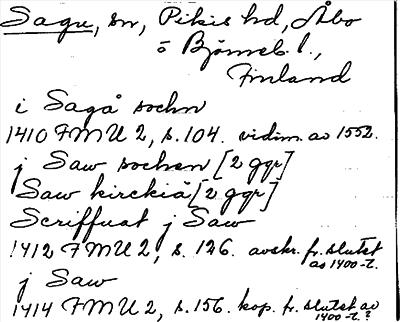 Sagu, sn, Pikis hd, Åbo
o Björneb. l.,
Finland
i Sagå sochn
1410 FMU 2, s. 104. vidim. av 1552.
j Saw sochen [2 ggr]
Saw kirckiä [2 ggr]
Scriffuat j Saw
1412 FMU 2, s. 126. avskr. fr. slutet
av 1400-t.
j Saw
1414 FMU 2, s. 156. kop. fr. slutet av
1400-t.?